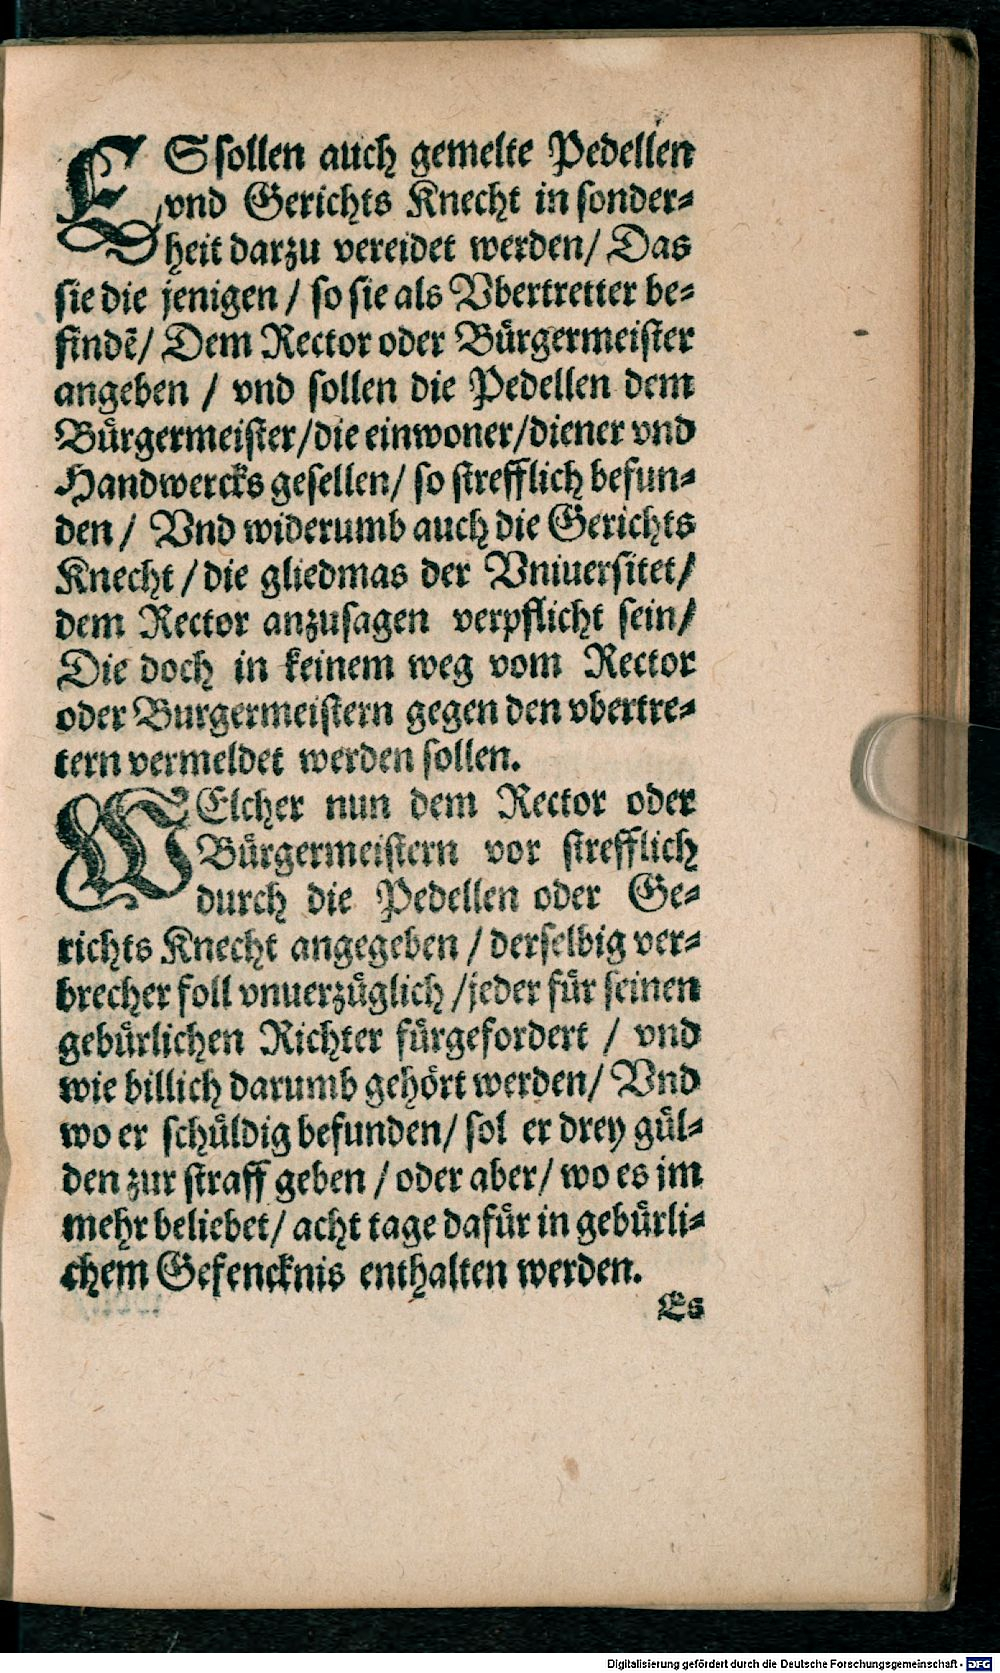 ES sollen auch gemelte Pedellen
vnd Gerichts Knecht in sonder-
heit darzu vereidet werden/ Das
sie die jenigen / so sie als Vbertretter be-
findē/ Dem Rector oder Bürgermeister
angeben / vnd sollen die Pedellen dem
Bürgermeister/die einwoner/diener vnd
Handwercks gesellen/ so strefflich befun-
den / Vnd widerumb auch die Gerichts
Knecht / die gliedmas der Vniuersitet/
dem Rector anzusagen verpflicht sein/
Die doch in keinem weg vom Rector
oder Burgermeistern gegen den vbertre-
tern vermeldet werden sollen.
WElcher nun dem Rector oder
Bürgermeistern vor strefflich
durch die Pedellen oder Ge-
richts Knecht angegeben / derselbig ver-
brecher soll vnuerzüglich /jeder für seinen
gebürlichen Richter fürgefordert / vnd
wie billich darumb gehört werden/ Vnd
wo er schüldig befunden/ sol er drey gül-
den zur straff geben / oder aber/ wo es jm
mehr beliebet/ acht tage dafür in gebürli-
chem Gefencknis enthalten werden.
Es
Digitalisierung gefördert durch die Deutsche Forschungsgemeinschaft - DFG